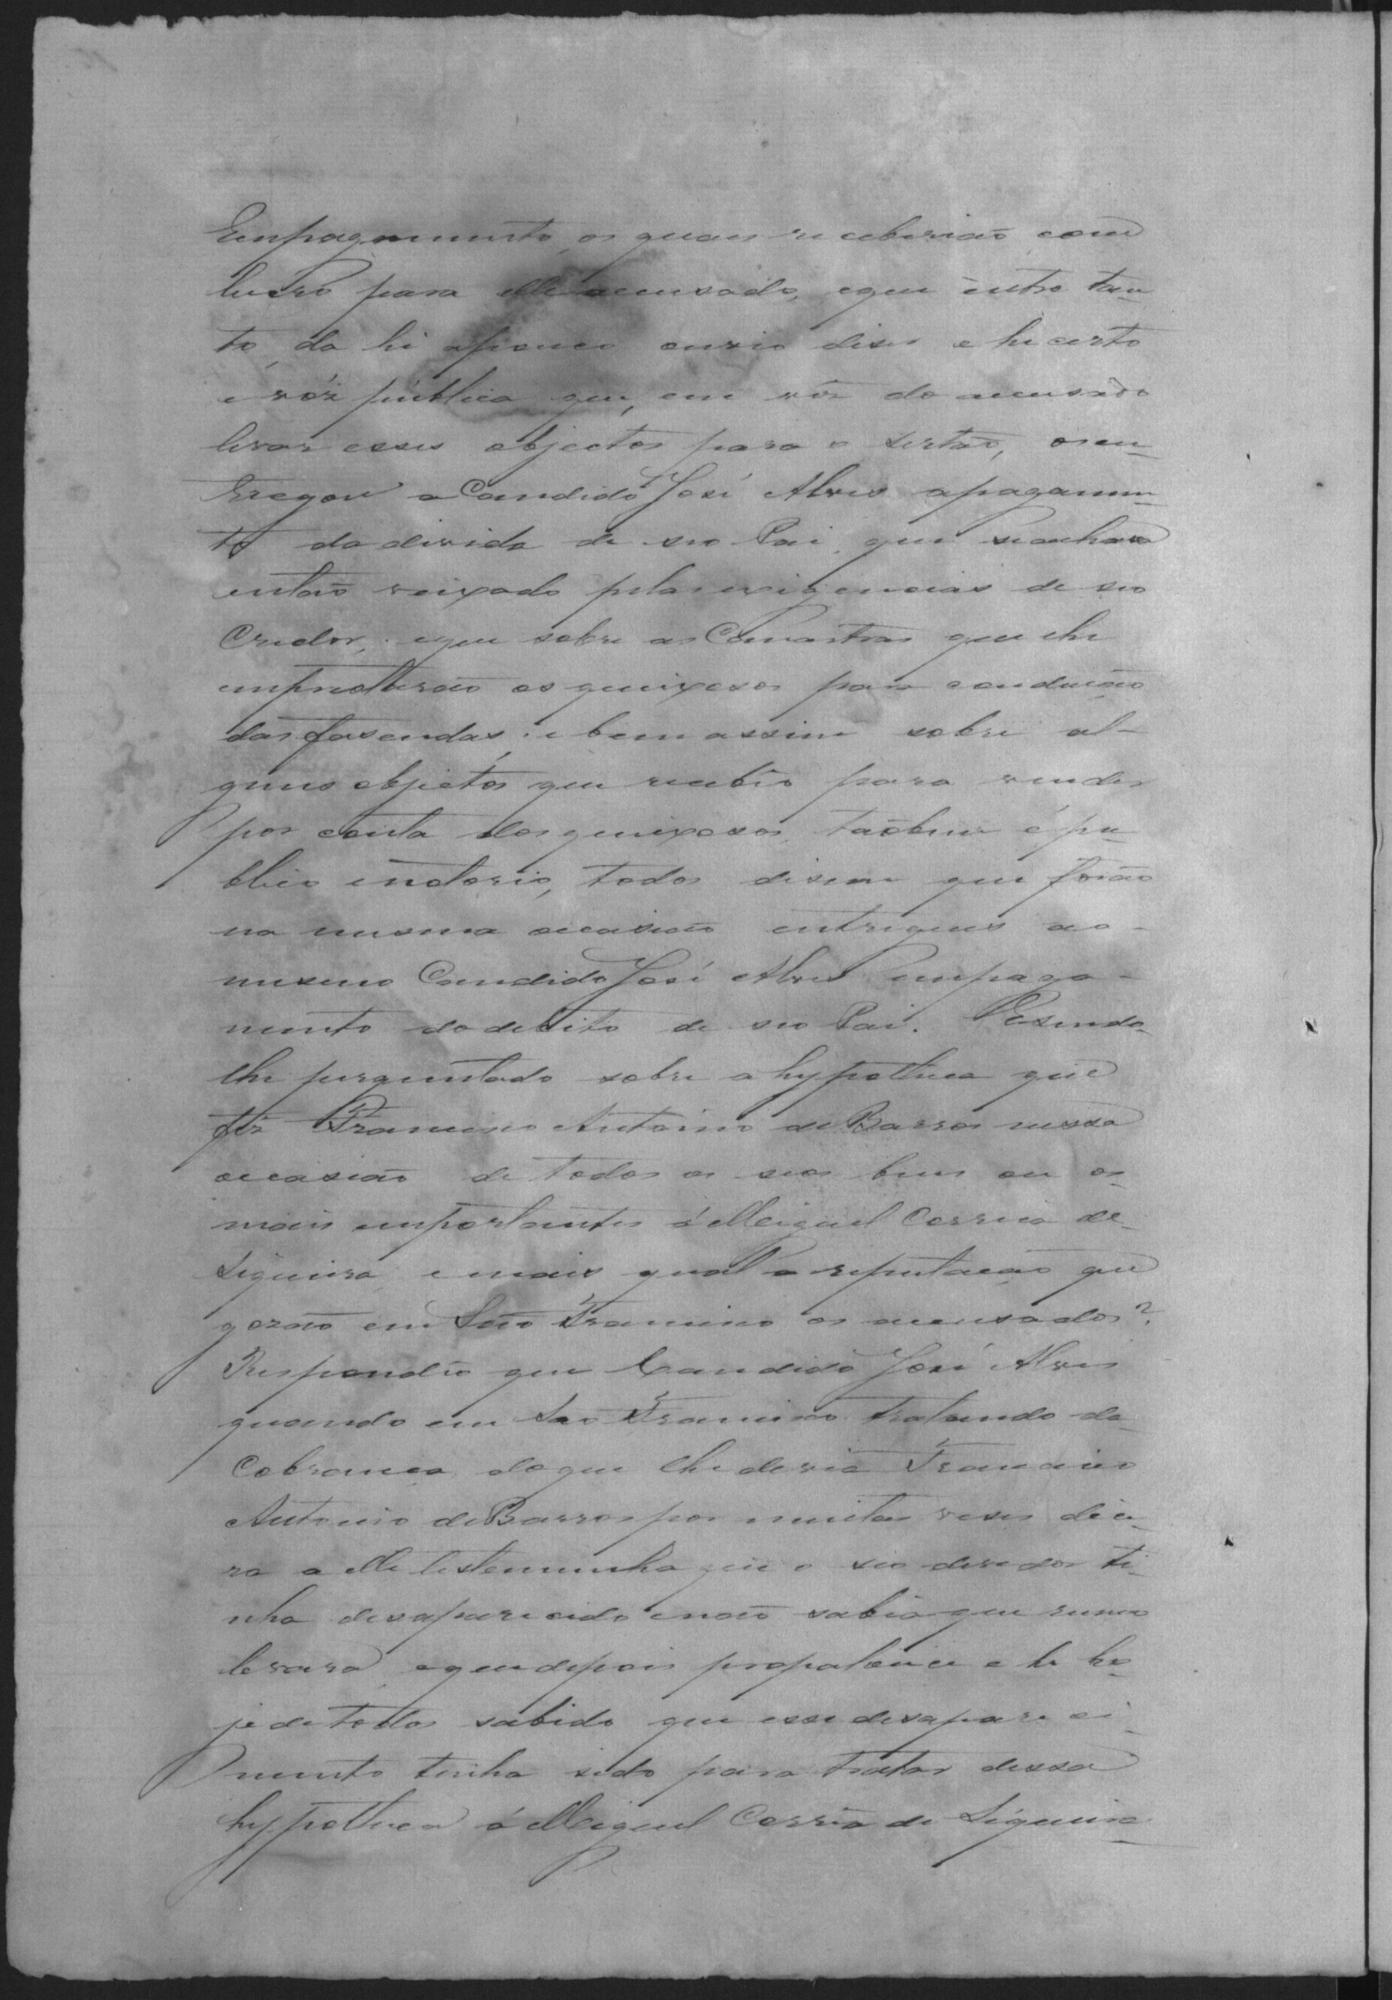 Empagamento, os quaes receberião com
lucro para elle accusado, eque entre tan-
to, da hi apouco ouvio diser e he certo
e vóz pública que, em vêz do accusado
levar esses objectos para o sertão, osen-
tregou a Candido José Alves apagamen-
to da divida de seo Pai, que seachava
então veixado pelas exigencias de seo
Credor; eque sobre as Canastras que lhe
emprestarão os queixosos para condução
das fasendas; e bem assim sobre al-
guns objectos que recebêo para vender
por conta dos queixosos, taobem é pu-
blico enotorio, todos disem que forão
na mesma occasião entregues ao
mesmo Candido José Alves empaga-
mento do debito de seo Pai. Esendo
lhe perguntado sobre a hypotheca que
fêz Francisco Antonio de Barros nessa
occasião de todos os seos bens ou os
mais emportantes á Miguel Correia de
Siqueira, e mais qual a reputação que
gozão em São Francisco os accusados?
Respondêo que Candido José Alves
quando em São Francisco tratando da
Cobrança doque lhe devia Francisco
Antonio de Barros por muitas veses dice-
ra a elle testemunha que o seo devedor ti-
nha desaparecido enão sabia que rumo
levara, eque depois propalou-se e he ho-
je de todos sabido que esse desapareci-
mento tinha sido para tratar dessa
hypotheca á Miguel Corrêa de Siqueira